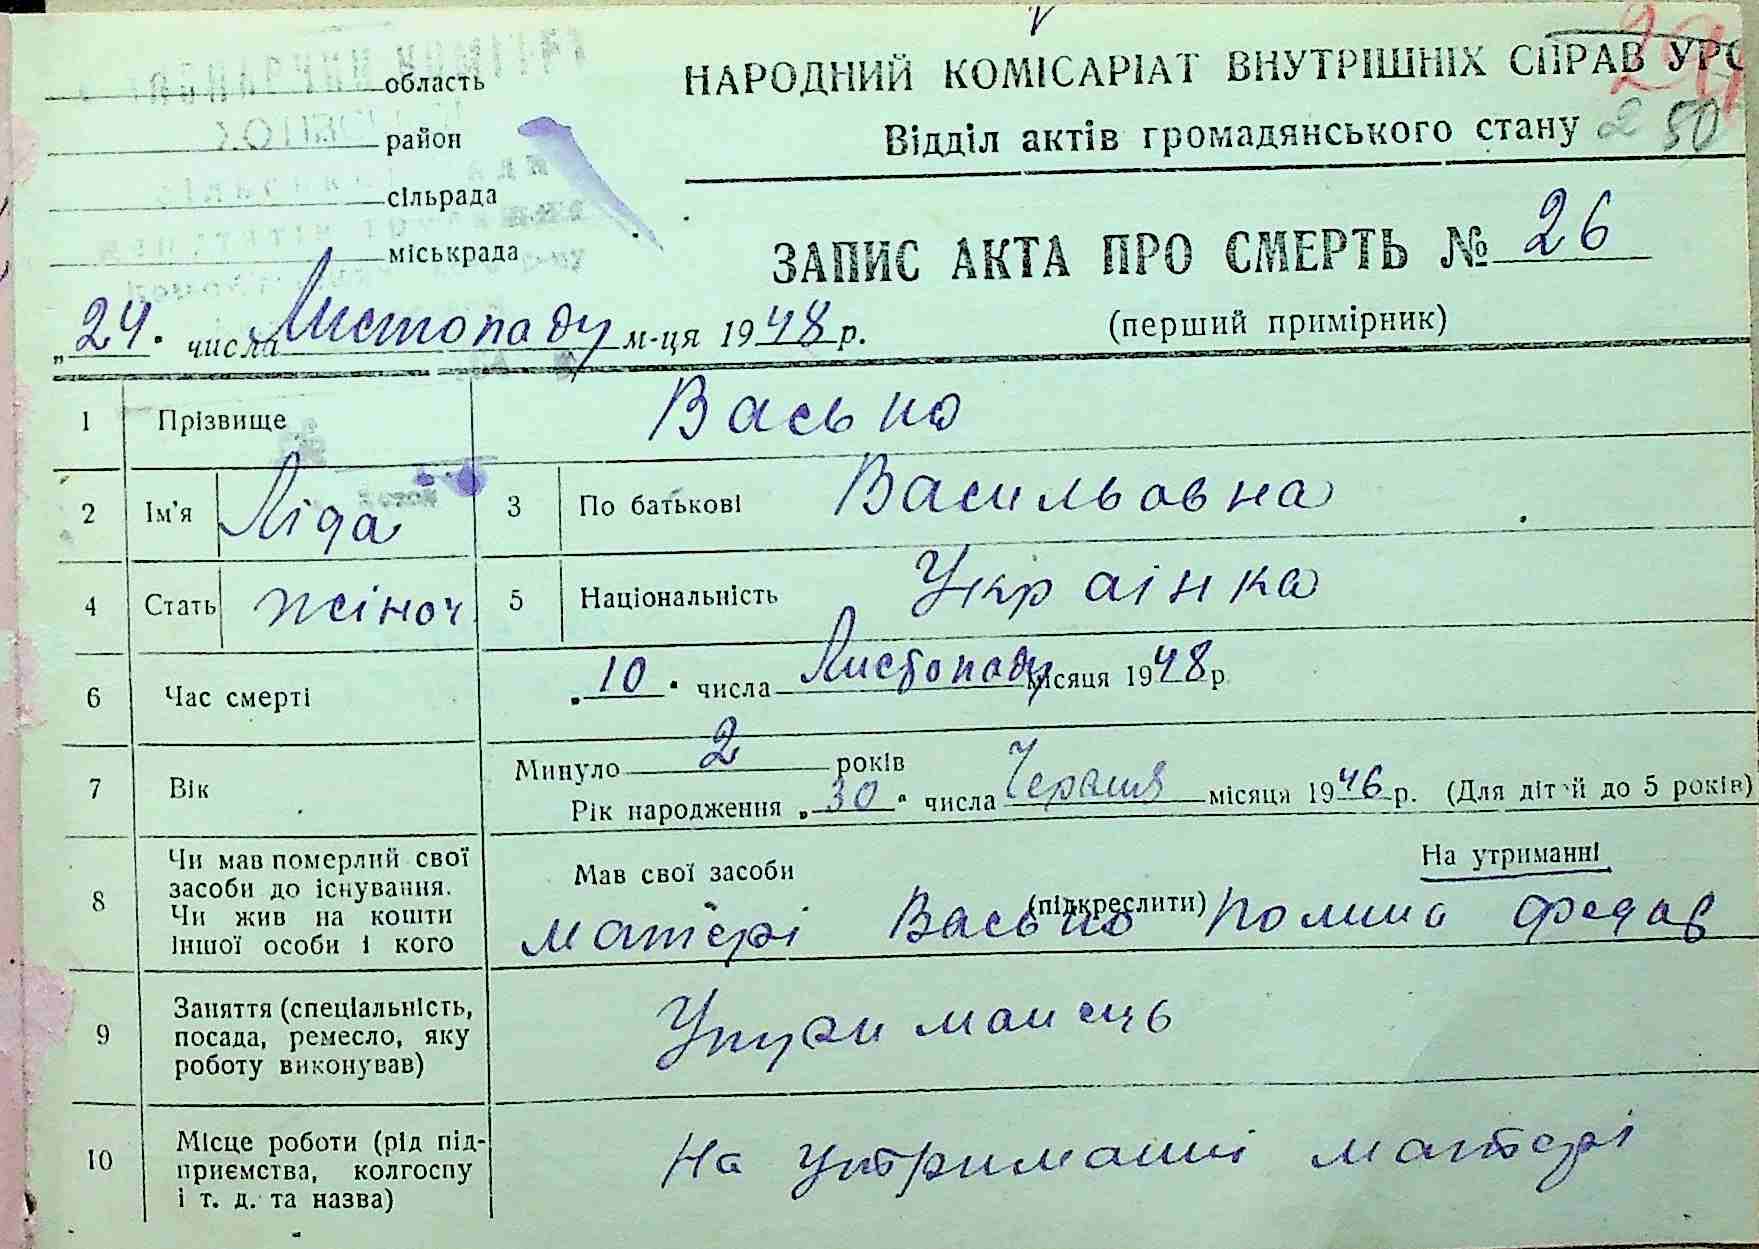 область НАРОДНИЙ КОМІСАРІАТ ВНУТРІШНІХ СПРАВ УРС
район Відділ актів громадянського стану 250
сільрада
міськрада
ЗАПИС АКТА ПРО СМЕРТЬ № 26
„24" числа Листопаду м-ця 1948 р. (перший примірник)
1 Прізвище Васько
2 Ім'я Ліда 3 По батькові Васильовна
4 Стать жіноч 5 Національність Українка
6 Час смерті „10" числа Листопаду місяця 1948 р.
7 Вік Минуло 2 років
Рік народження „30" числа Червня місяця 1946 р. (Для дітей до 5 років)
8 Чи мав померлий свої засоби до існування. Чи жив на кошти іншої особи і кого
Мав свої засоби На утриманні
(підкреслити)
матері Васько Федор
9 Заняття (спеціальність, посада, ремесло, яку роботу виконував) Утриманець
10 Місце роботи (рід підприємства, колгоспу і т. д. та назва) На утриманні матері